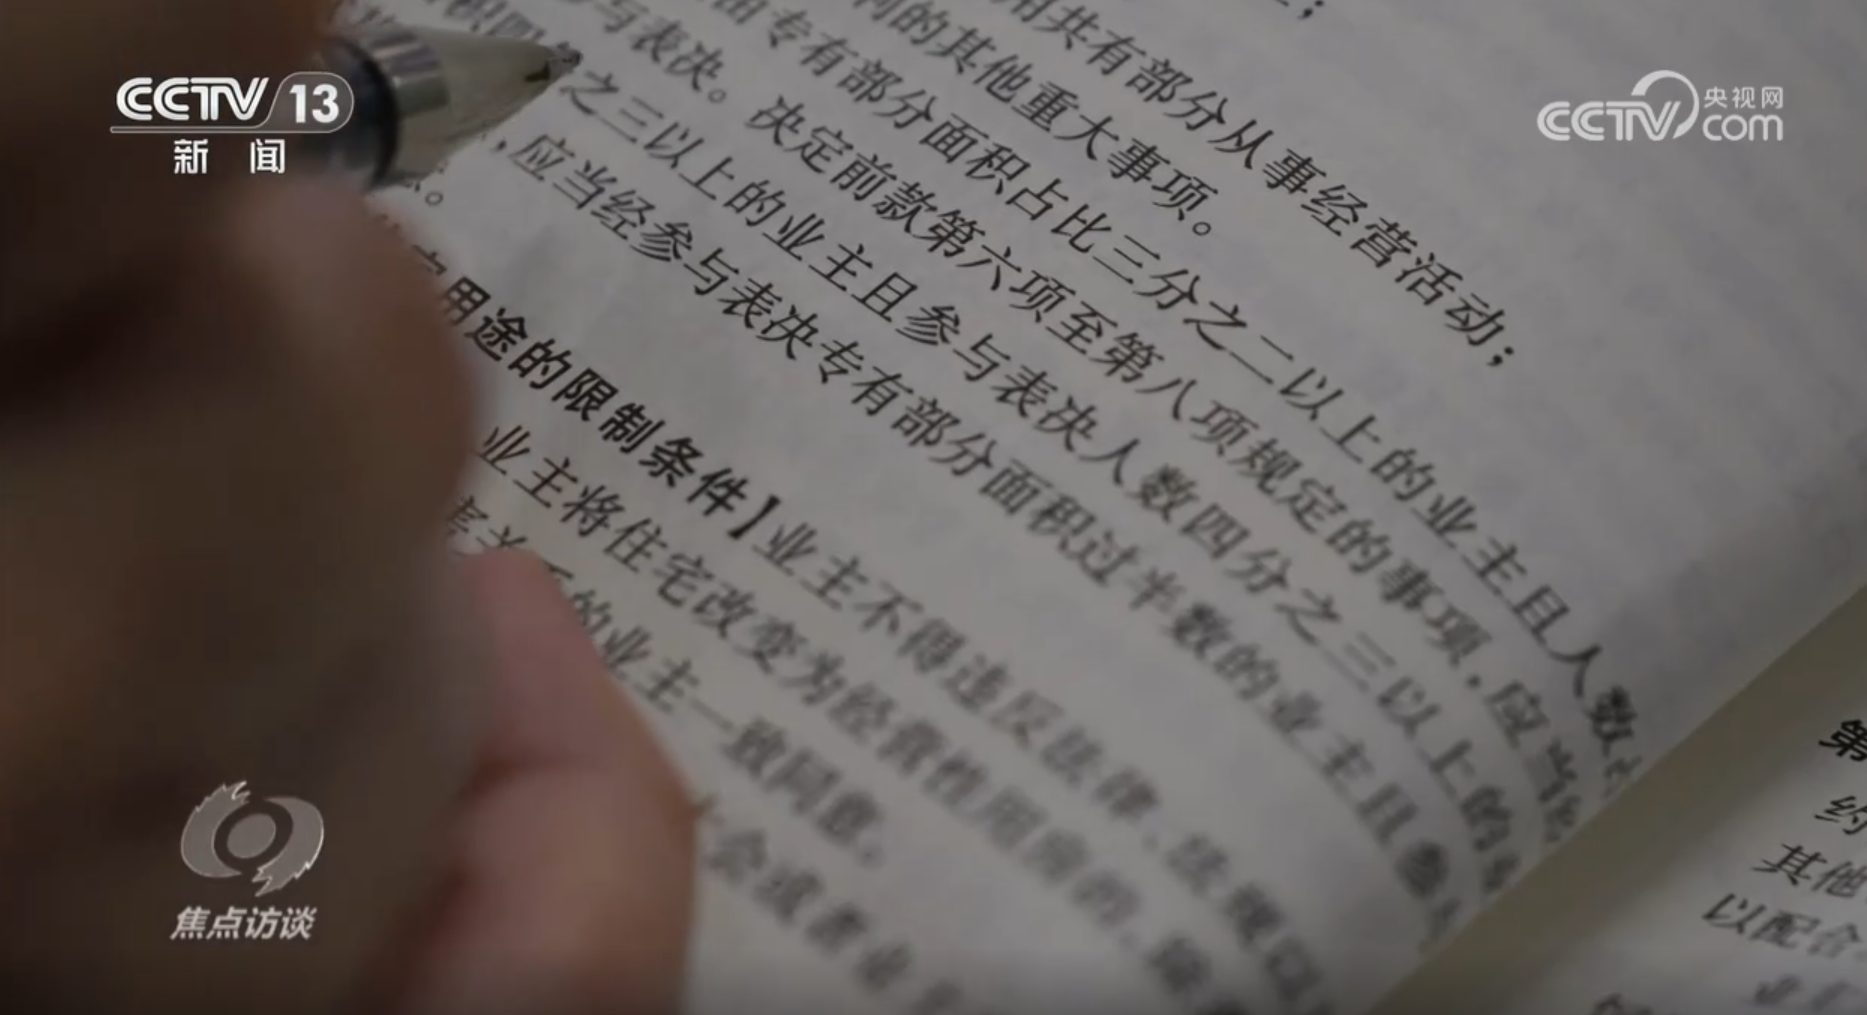 CCTV 13
新闻
央视网
CCTV com
用共有部分从事经营活动；
利的其他重大事项。
由专有部分面积占比三分之二以上的业主且人数
与表决。决定前款第六项至第八项规定的事项，应当
之三以上的业主且参与表决人数四分之三以上的
，应当经参与表决专有部分面积过半数的业主且参
用途的限制条件】业主不得违反法律、法规以
业主将住宅改变为经营性用房的，除
的业主一致同意。
会或者业
第
约
其他
以配合
焦点访谈